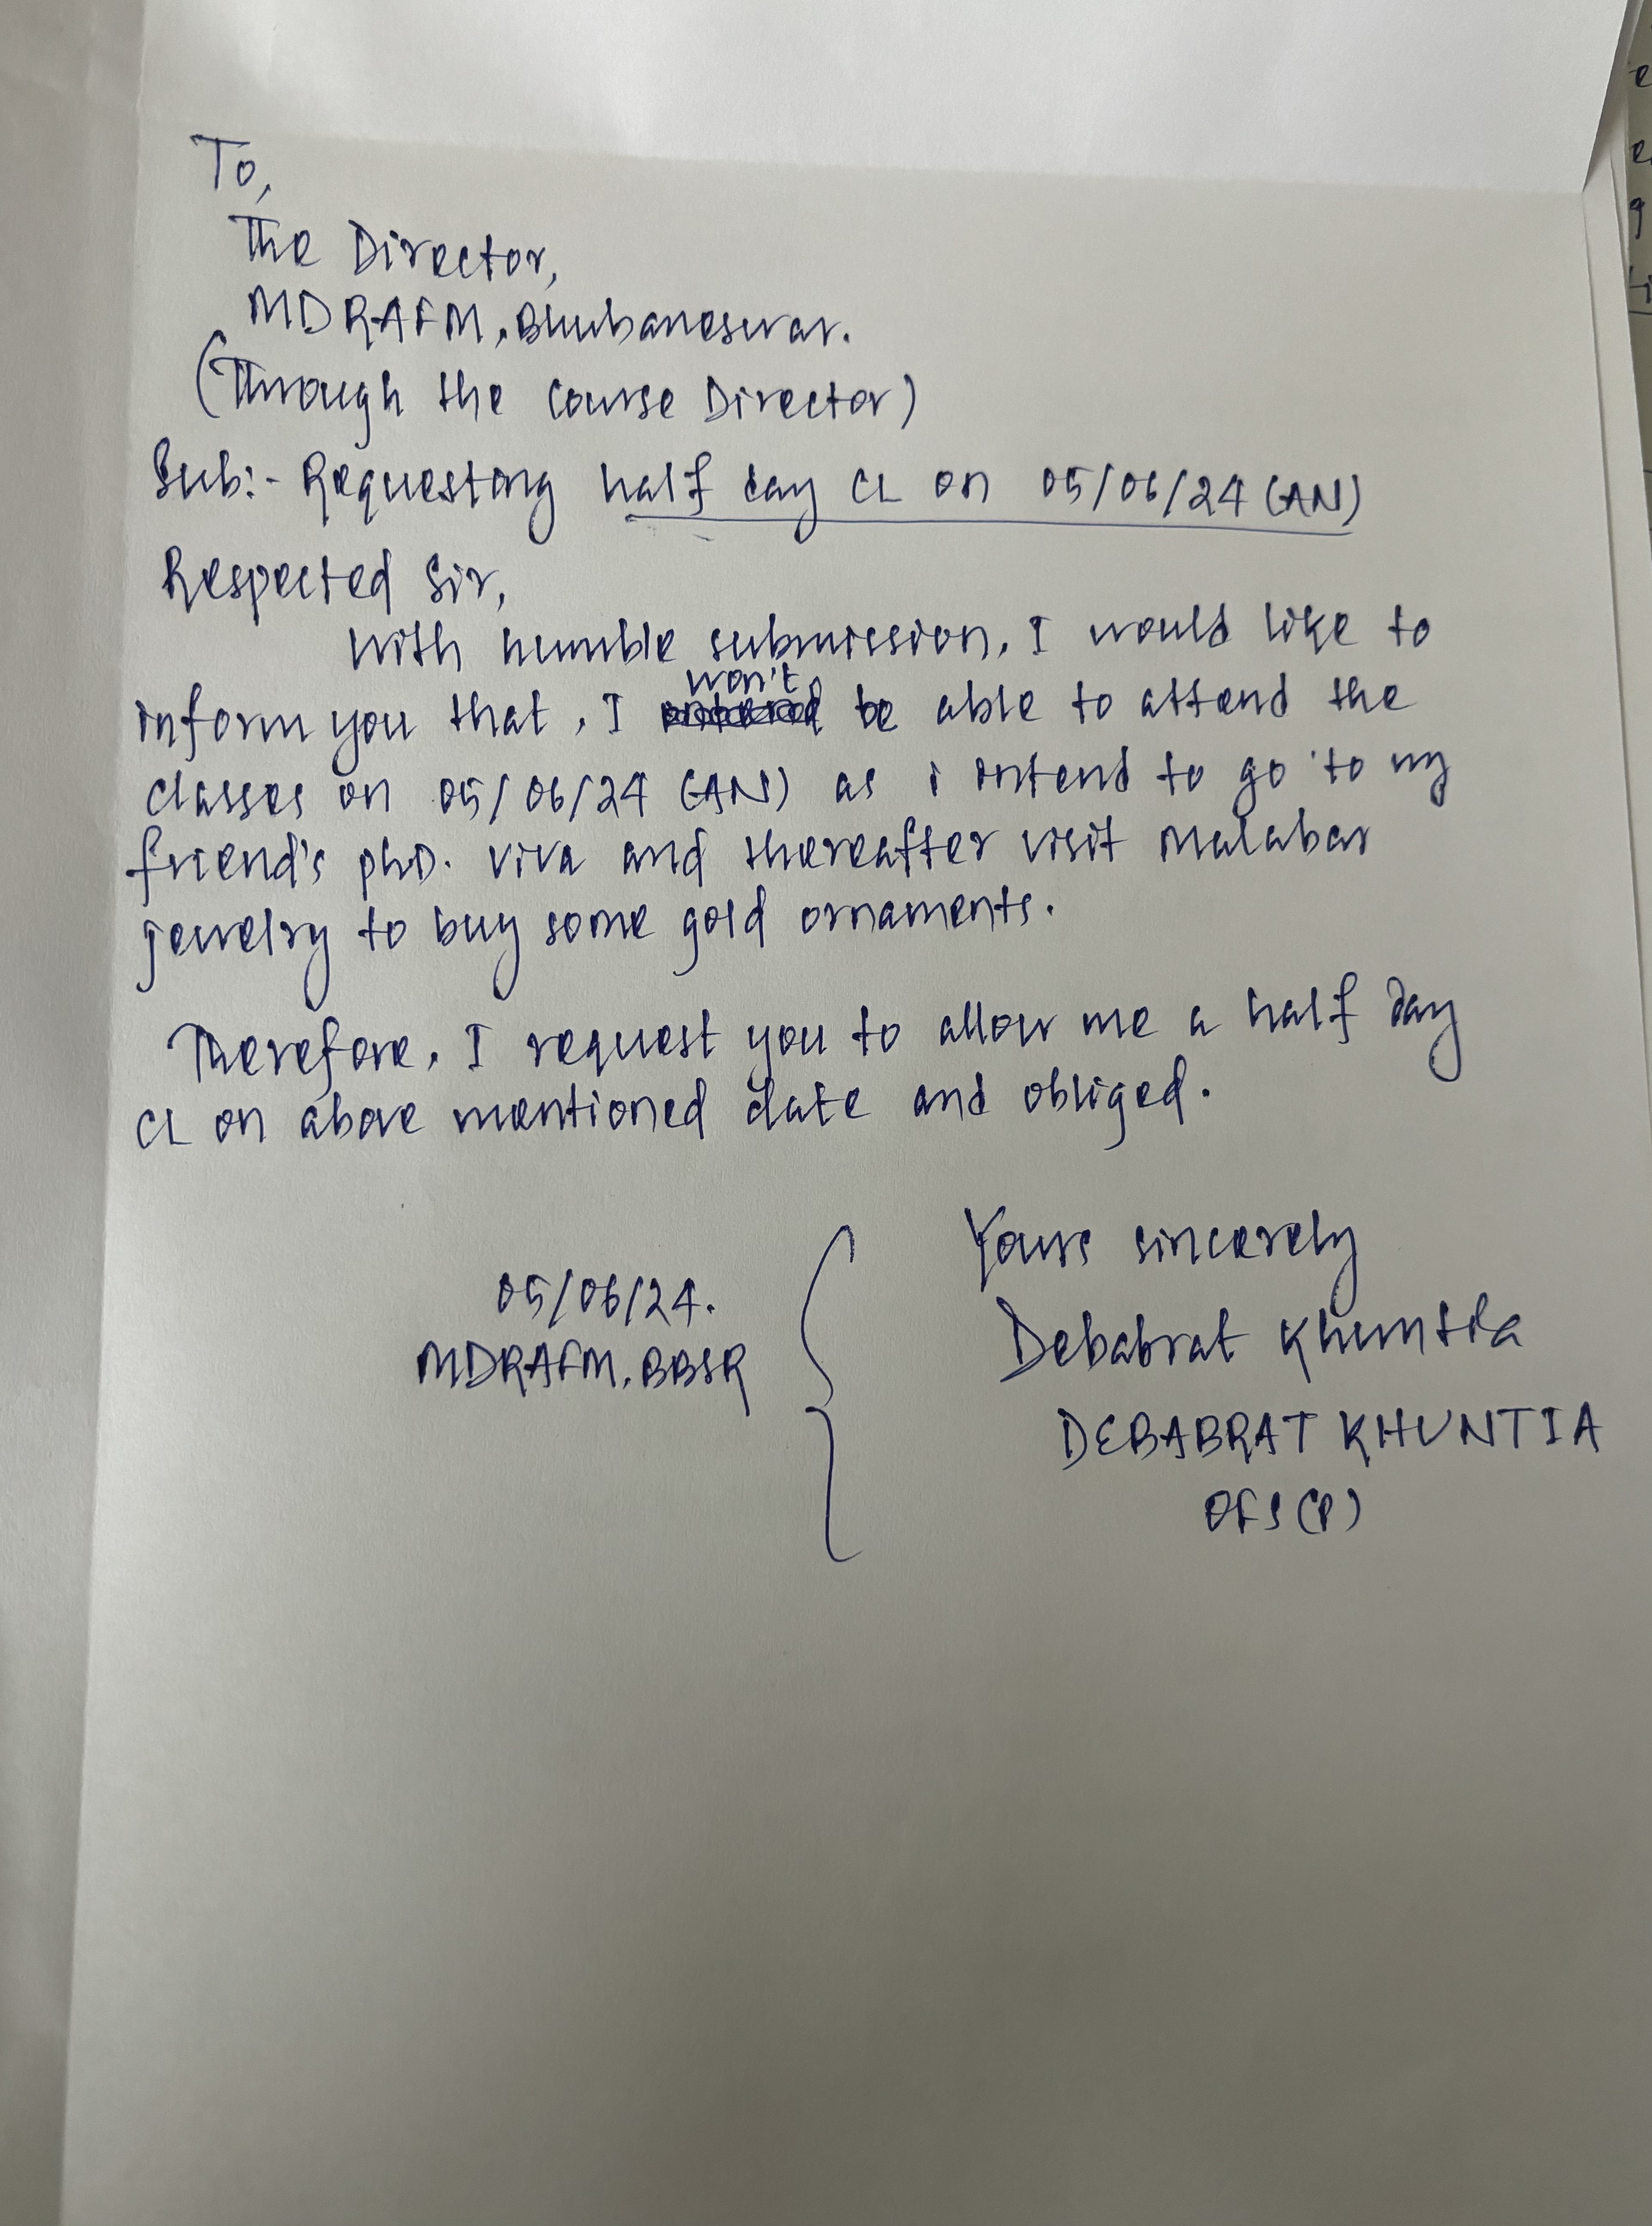 To,
The Director,
MDRAFM, Bhubaneswar.
(Through the Course Director)
Sub:- Requesting half day CL on 05/06/24 (AN)
Respected Sir,
With humble submission, I would like to
inform you that, I won't be able to attend the
classes on 05/06/24 (AN) as i intend to go to my
friend's phD. viva and thereafter visit Malabar
jewelry to buy some gold ornaments.
Therefore, I request you to allow me a half day
CL on above mentioned date and obliged.
Yours sincerely
05/06/24.
Debabrat Khuntia
MDRAFM, BBSR
DEBABRAT KHUNTIA
OFS (P)